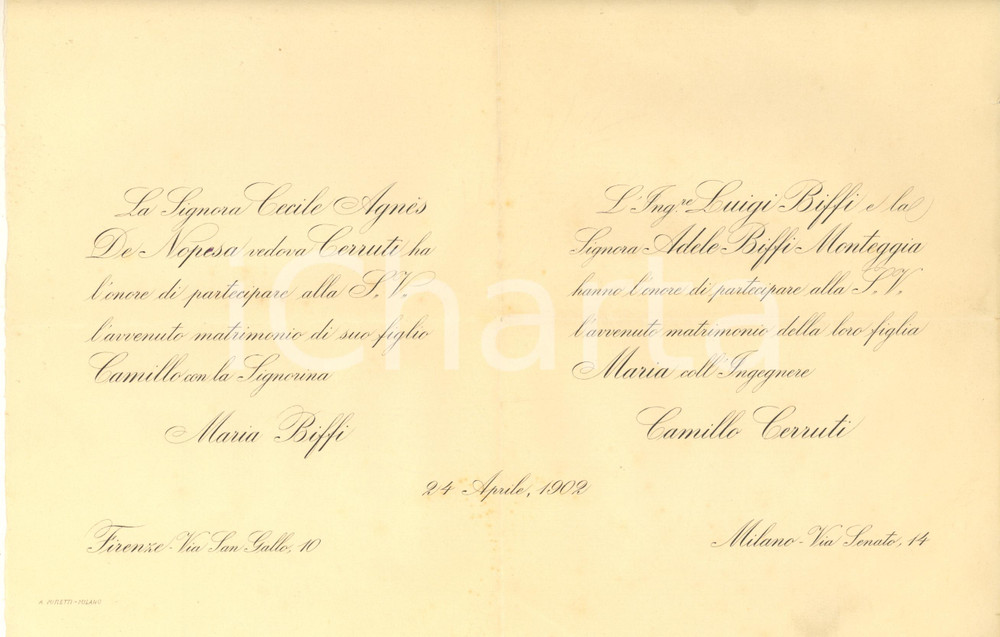 La Signora Cecile Agnès
De Nopesa vedova Cerruti ha
l'onore di partecipare alla S. V.
l'avvenuto matrimonio di suo figlio
Camillo con la Signorina
Maria Biffi
L'Ing.re Luigi Biffi e la
Signora Adele Biffi-Monteggia
hanno l'onore di partecipare alla S. V.
l'avvenuto matrimonio della loro figlia
Maria coll'Ingegnere
Camillo Cerruti
24 Aprile, 1902
Firenze - Via San Gallo, 10
Milano - Via Senato, 14
A. - MILANO
iCharta